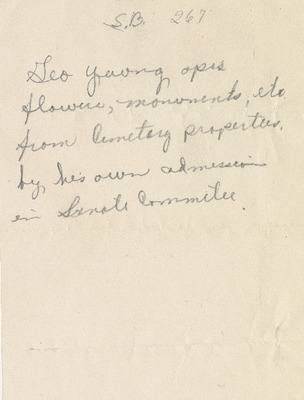 S.B. 267
Geo Young opes
flowers, monuments, etc
from Cemetery properties,
by his own admission
in Senate Committee.